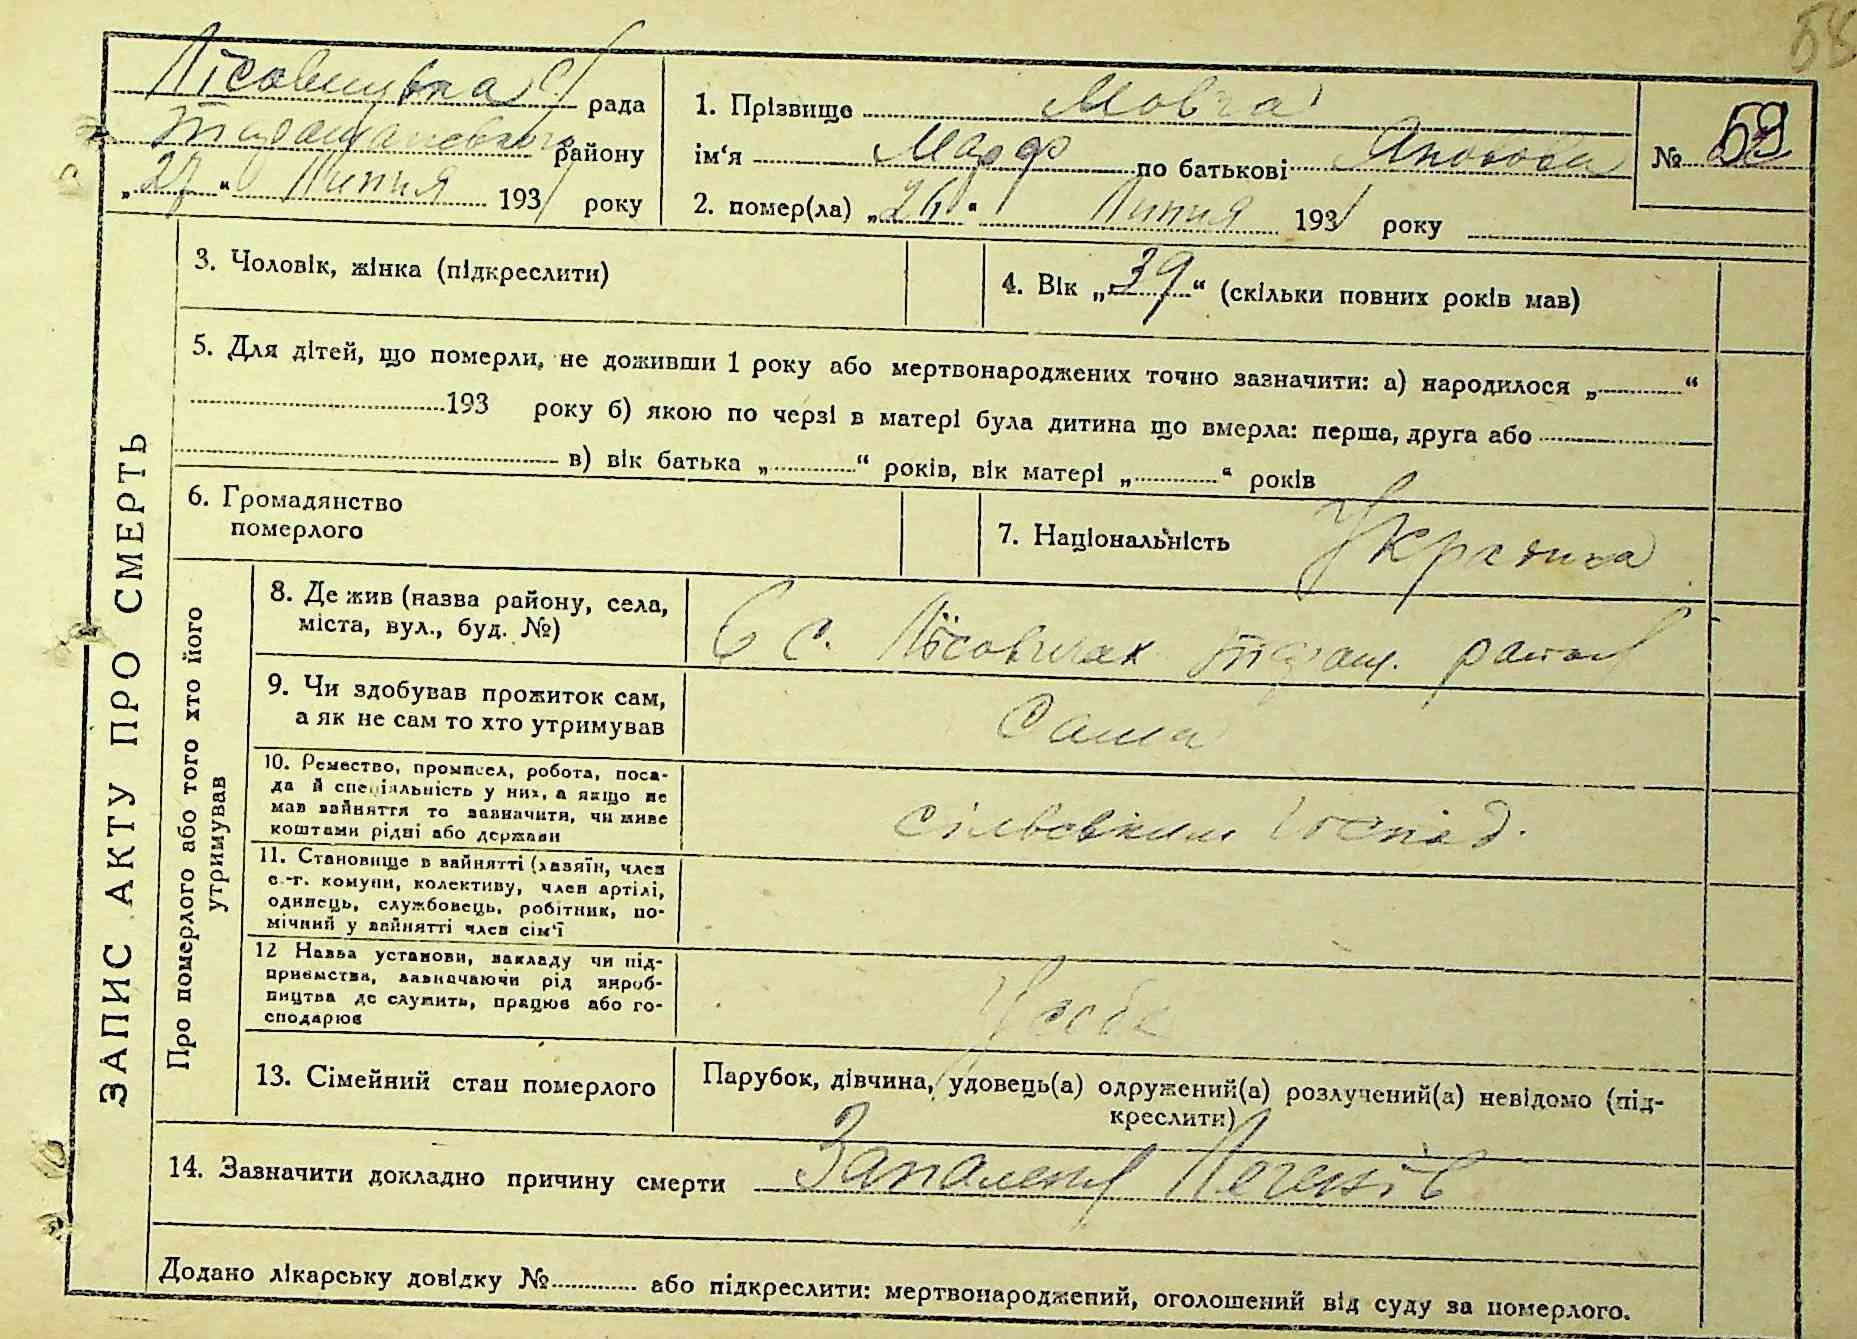 58
Лісовицька С/ рада
Таращанського району
„27“ Липня 1931 року
1. Прізвище Мовча
ім‘я по батькові Яковова
№ 59
2. помер(ла) „26“ Липня 1931 року
ЗАПИС АКТУ ПРО СМЕРТЬ
3. Чоловік, жінка (підкреслити)
4. Вік „39“ (скільки повних років мав)
5. Для дітей, що померли, не доживши 1 року або мертвонароджених точно зазначити: а) народилося „ “
193 року б) якою по черзі в матері була дитина що вмерла: перша, друга або
в) вік батька „ “ років, вік матері „ “ років
6. Громадянство
померлого
7. Національність Україн
Про померлого або того хто його
утримував
8. Де жив (назва району, села,
міста, вул., буд. №)
в с. Лісовичах Таращ. району
9. Чи здобував прожиток сам,
а як не сам то хто утримував
Сама
10. Ремество, промисел, робота, поса-
да й спеціяльність у них, а якщо не
мав зайняття то зазначити, чи живе
коштами рідні або держави
сільським господ.
11. Становище в зайнятті (хазяїн, член
с.-г. комуни, колективу, член артілі,
одинець, службовець, робітник, по-
мічний у зайнятті член сім‘ї
12 Назва установи, закладу чи під-
приємства, зазначаючи рід вироб-
ництва де служить, працює або го-
сподарює
13. Сімейний стан померлого
Парубок, дівчина, удовець(а) одружений(а) розлучений(а) невідомо (під-
креслити)
14. Зазначити докладно причину смерти Запалення Легенів
Додано лікарську довідку № або підкреслити: мертвонароджений, оголошений від суду за померлого.